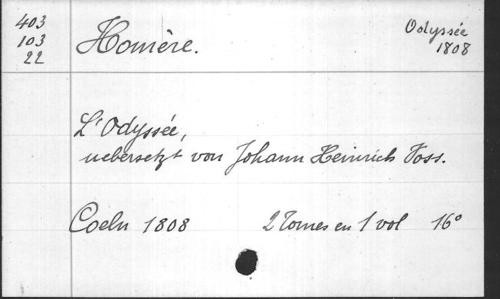 403
103
22
Homère.
Odyssée
1808
L'Odyssée,
uebersetzt von Johann Heinrich Voss.
Coeln 1808 2 Tomes en 1 vol 16°